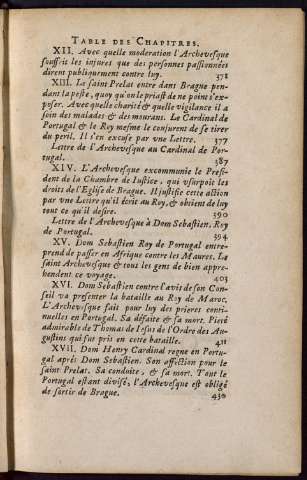 TABLE DES CHAPITRES.
XII. Avec quelle moderation l'Archevesque
souffrit les injures que des personnes passionnées
dirent publiquement contre luy. 378
XIII. Le saint Prelat entre dans Brague pen-
dant la peste, quoy qu'on le priast de ne point s'ex-
poser. Avec quelle charité & quelle vigilance il a
soin des malades & des mourans. Le Cardinal de
Portugal & le Roy mesme le conjurent de se tirer
du peril. Il s'en excuse par vne Lettre. 377
Lettre de l'Archevesque au Cardinal de Por-
tugal. 387
XIV. L'Archevesque excommunie le Presi-
dent de la Chambre de Iustice, qui vsurpoit les
droits de l'Eglise de Brague. Il justifie cette action
par vne Lettre qu'il écrit au Roy, & obtient de luy
tout ce qu'il desire. 390
Lettre de l'Archevesque à Dom Sebastien, Roy
de Portugal. 394
XV. Dom Sebastien Roy de Portugal entre-
prend de passer en Afrique contre les Maures. Le
saint Archevesque & tous les gens de bien appre-
hendent ce voyage. 403
XVI. Dom Sebastien contre l'avis de son Con-
seil va presenter la bataille au Roy de Maroc.
L'Archevesque fait pour luy des prieres conti-
nuelles en Portugal. Sa défaite & sa mort. Pieté
admirable de Thomas de Iesus de l'Ordre des Au-
gustins qui fut pris en cette bataille. 411
XVII. Dom Henry Cardinal regne en Portu-
gal aprés Dom Sebastien. Son affection pour le
saint Prelat. Sa conduite, & sa mort. Tout le
Portugal estant divisé, l'Archevesque est obligé
de sortir de Brague. 430